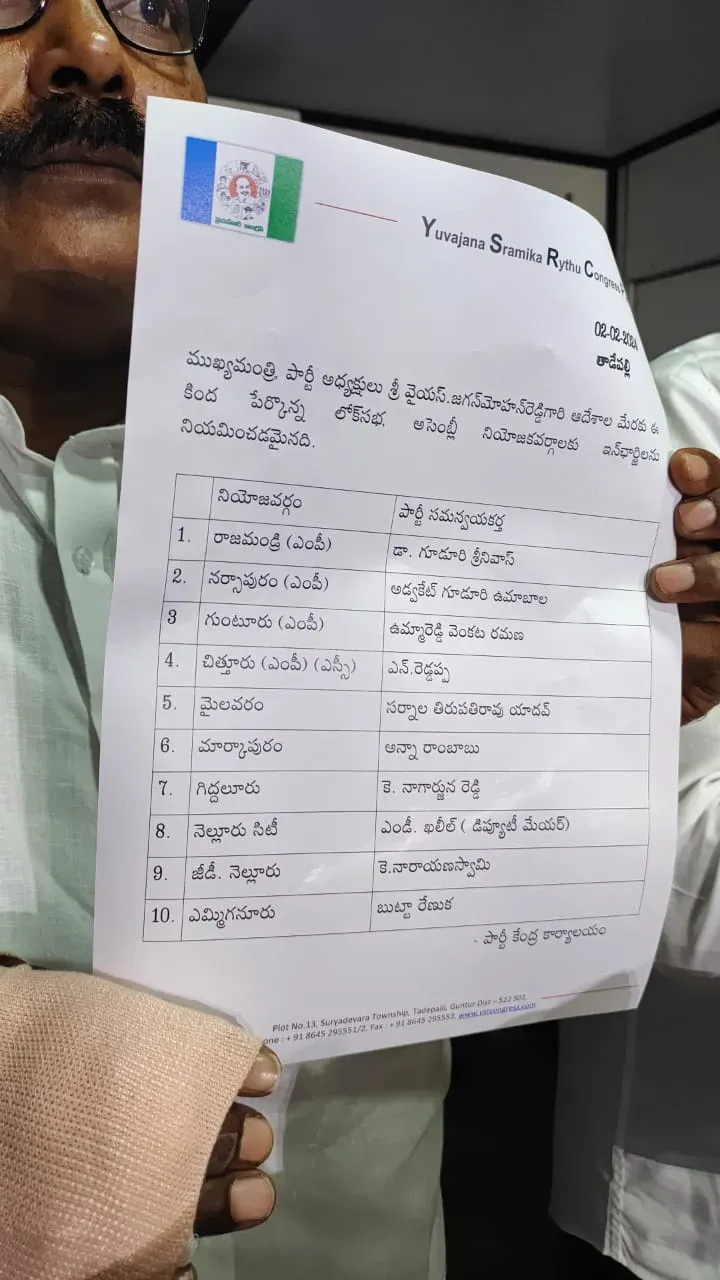 వైయస్ఆర్ కాంగ్రెస్
Yuvajana Sramika Rythu Congress
02-02-2024
తాడేపల్లి
ముఖ్యమంత్రి, పార్టీ అధ్యక్షులు శ్రీ వైయస్.జగన్‌మోహన్‌రెడ్డిగారి ఆదేశాల మేరకు ఈ
కింద పేర్కొన్న లోక్‌సభ, అసెంబ్లీ నియోజకవర్గాలకు ఇన్‌ఛార్జిలను
నియమించడమైనది.
నియోజవర్గం పార్టీ సమన్వయకర్త
1. రాజమండ్రి (ఎంపీ) డా. గూడూరి శ్రీనివాస్
2. నర్సాపురం (ఎంపీ) అడ్వకేట్ గూడూరి ఉమాబాల
3 గుంటూరు (ఎంపీ) ఉమ్మారెడ్డి వెంకట రమణ
4. చిత్తూరు (ఎంపీ) (ఎస్సీ) ఎన్.రెడ్డప్ప
5. మైలవరం సర్నాల తిరుపతిరావు యాదవ్
6. మార్కాపురం అన్నా రాంబాబు
7. గిద్దలూరు కె. నాగార్జున రెడ్డి
8. నెల్లూరు సిటీ ఎండీ. ఖలీల్ ( డిప్యూటీ మేయర్)
9. జీడీ. నెల్లూరు కె.నారాయణస్వామి
10. ఎమ్మిగనూరు బుట్టా రేణుక
- పార్టీ కేంద్ర కార్యాలయం
Plot No.13, Suryadevara Township, Tadepalli, Guntur Dist – 522 501.
one : + 91 8645 295551/2, Fax : + 91 8645 295553, www.ysrcongress.com